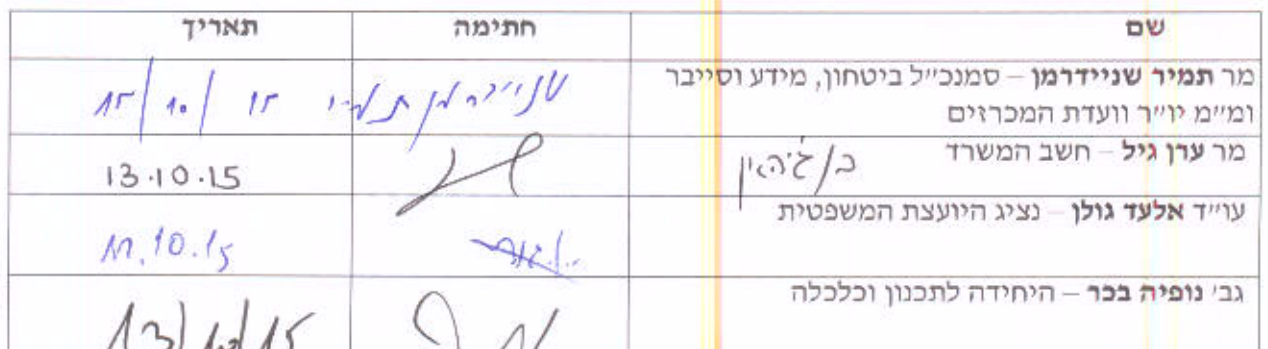 שם חתימה תאריך
מר תמיר שניידרמן – סמנכ״ל ביטחון, מידע וסייבר
ומ״מ יו״ר וועדת המכרזים
שניידרמן תמיר 15/10/15
מר ערן גיל – חשב המשרד
13.10.15
עו״ד אלעד גולן – נציג היועצת המשפטית
גב׳ נופיה בכר – היחידה לתכנון וכלכלה
13/10/15